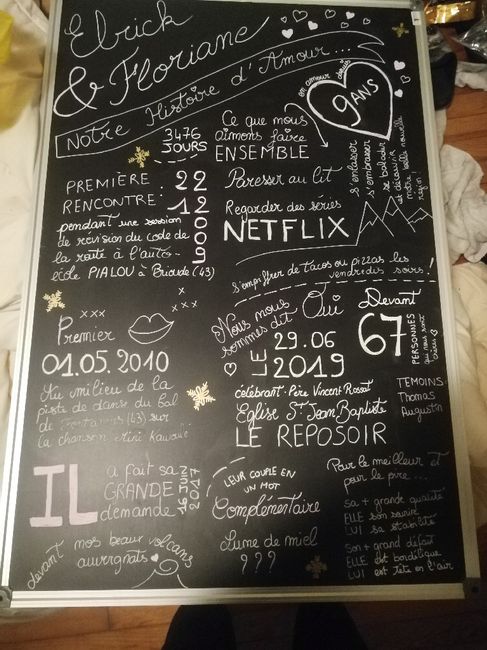 Elrick
& Floriane
Notre Histoire d'Amour...
en amour depuis
9 ANS
3476
JOURS
Ce que nous
aimons faire
ENSEMBLE
s'enlacer
s'embrasser
se balader
et découvrir
notre belle nouvelle
région
PREMIÈRE
RENCONTRE:
22
12
2009
pendant une session
de révision du code de
la route à l'auto-
école PIALOU à Brioude (43)
Paresser au lit
Regarder des séries
NETFLIX
s'empiffrer de tacos ou pizzas les
vendredis soirs!
xxx
xxx
Premier
01.05.2010
Au milieu de la
piste de danse du bal
de (43) sur
la chanson Mini Kawaii
Nous nous
sommes dit
Oui
LE
29.06
2019
Devant
67
PERSONNES
qui nous sont
chères
célébrant: Père Vincent Rossat
Eglise St Jean Baptiste
LE REPOSOIR
TEMOINS
Thomas
Augustin
IL
a fait sa
GRANDE
demande
16 JUIN
2017
devant nos beaux volcans
auvergnats
LEUR COUPLE EN
UN MOT
Complémentaire
Lune de miel
???
Pour le meilleur et
pour le pire...
sa + grande qualité
ELLE son sourire
LUI sa stabilité
son + grand défaut
ELLE est bordélique
LUI est tête en l'air